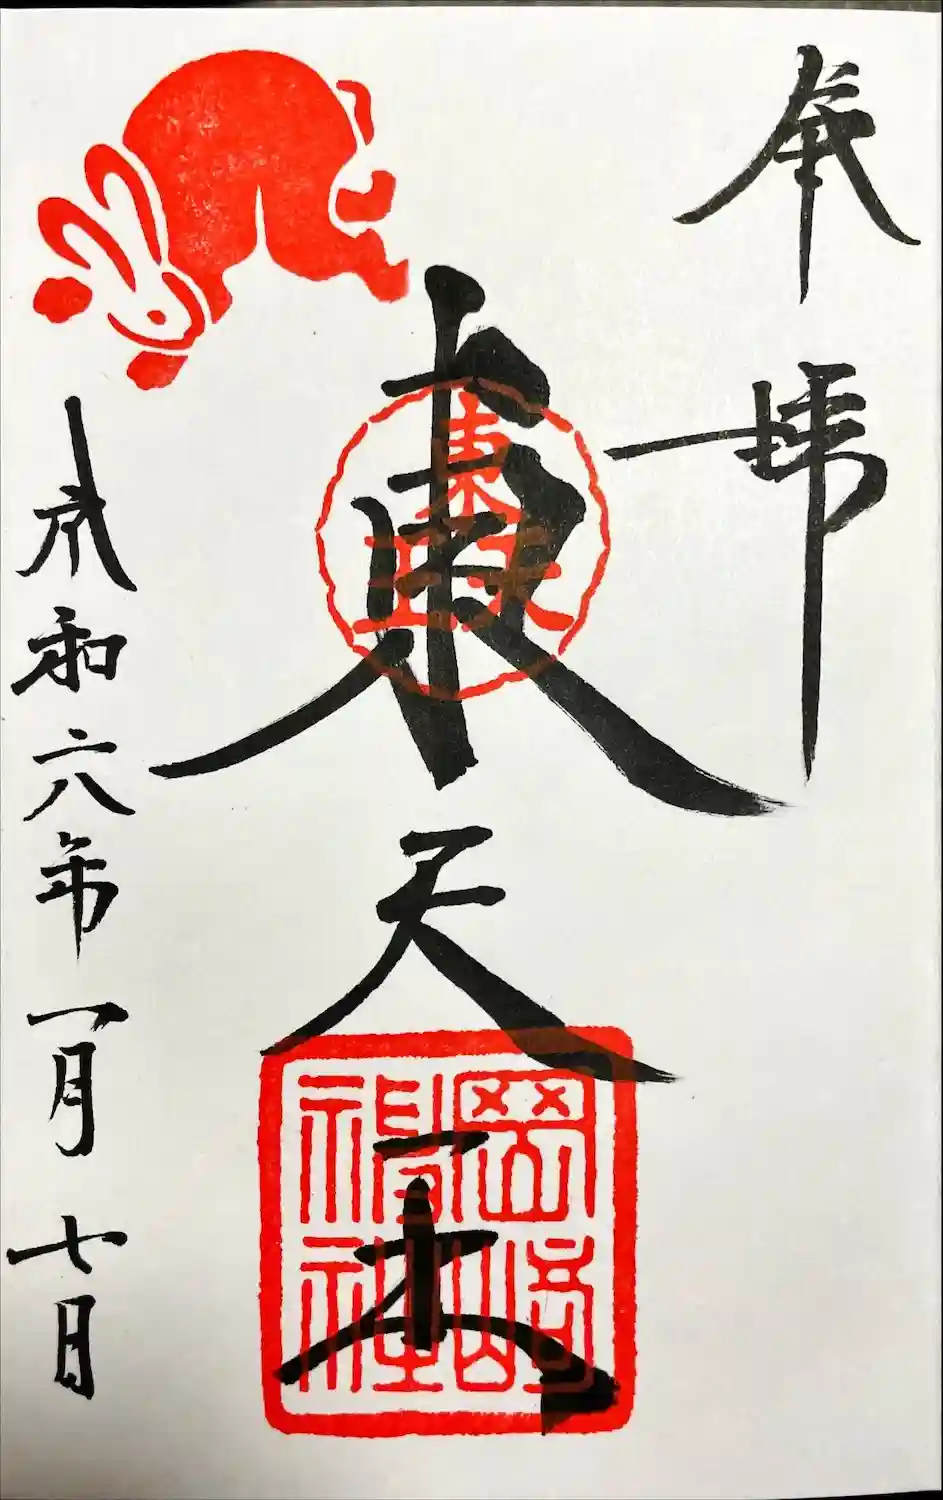 奉拝
東天王
令和六年一月七日
東天王
岡崎神社